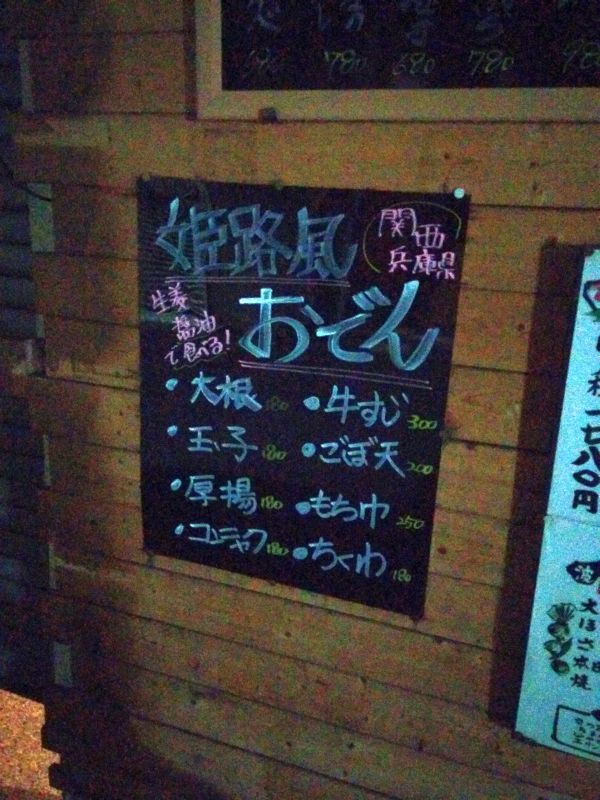 680 780 680 780 980
関西
兵庫県
姫路風
おでん
生姜
醤油
で食べる!
・大根 180
・玉子 180
・厚揚 180
・コンニャク 180
・牛すじ 300
・ごぼ天 200
・もち巾 250
・ちくわ 180
一七八〇円
大ほさ本焼